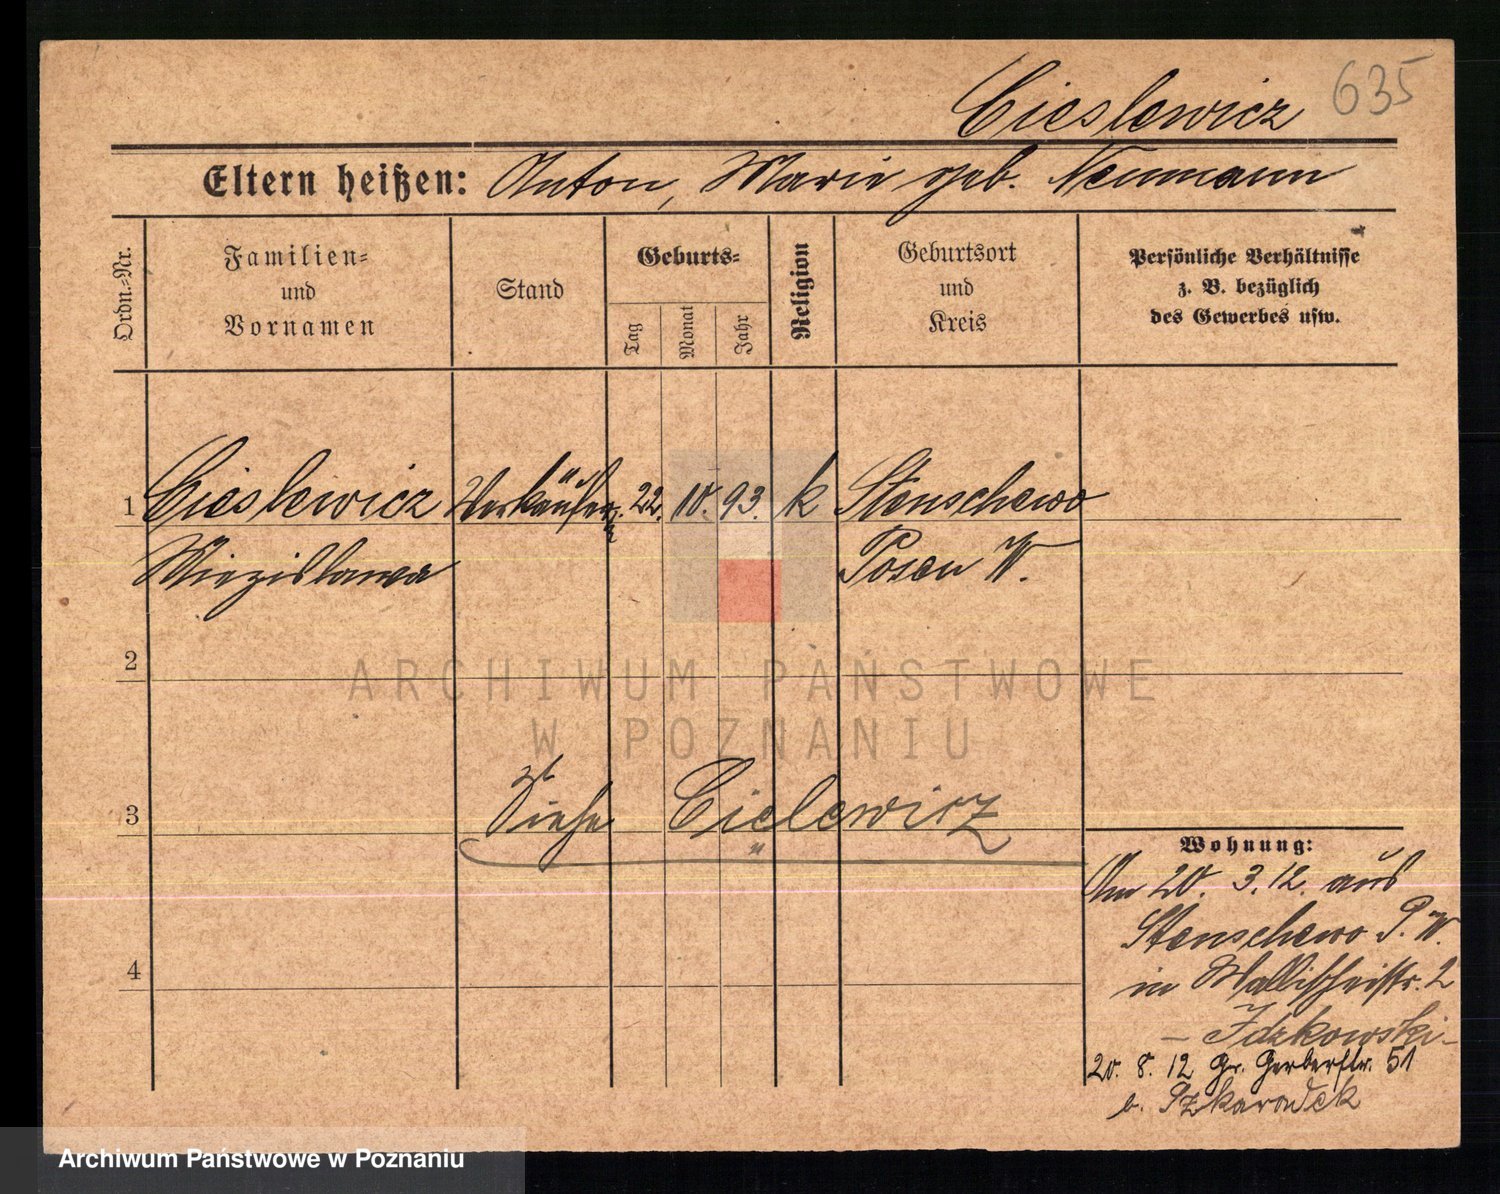 635
Cieslewicz
Eltern heißen: Anton, Marie geb. Neumann
Ordn.-Nr.
Familien-
und
Vornamen
Stand
Geburts-
Tag
Monat
Jahr
Religion
Geburtsort
und
Kreis
Persönliche Verhältnisse
z. B. bezüglich
des Gewerbes usw.
1 Cieslewicz Verkäuferin 22. 10. 93. k Stenschewo
Miezislawa Posen W.
2
ARCHIWUM PAŃSTWOWE
W POZNANIU
3 Siehe Cielewicz
4
Wohnung:
Am 20. 3. 12. aus
Stenschewo P. W.
in Wallischeistr. 2
- Idzkowski -
20. 8. 12 Gr. Gerberstr. 51
b. Szkaradek
Archiwum Państwowe w Poznaniu